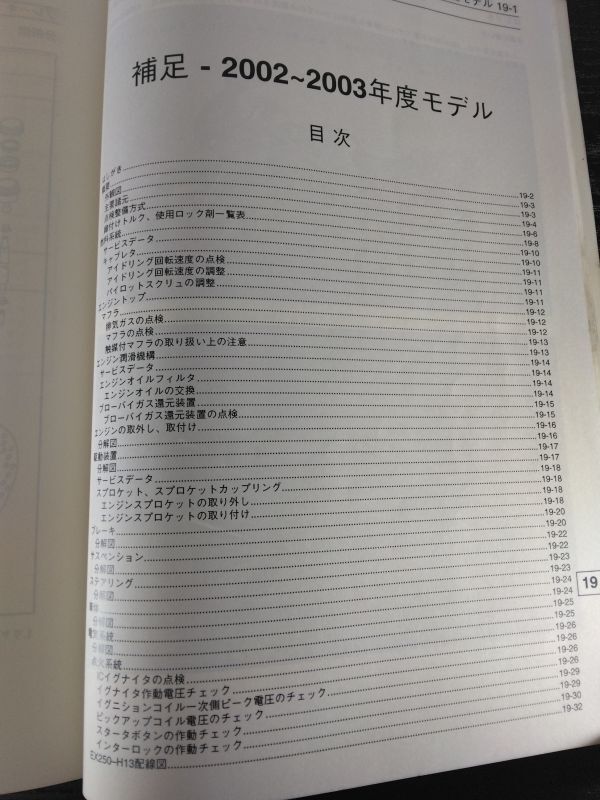 モデル 19-1
補足 - 2002~2003年度モデル
目次
はしがき 19-2
概要 19-3
外観図 19-3
主要諸元 19-4
点検整備方式 19-6
締付けトルク、使用ロック剤一覧表 19-8
燃料系統 19-10
サービスデータ 19-10
キャブレタ 19-11
アイドリング回転速度の点検 19-11
アイドリング回転速度の調整 19-11
パイロットスクリュの調整 19-11
エンジントップ 19-12
マフラ 19-12
排気ガスの点検 19-12
マフラの点検 19-13
触媒付マフラの取り扱い上の注意 19-13
エンジン潤滑機構 19-14
サービスデータ 19-14
エンジンオイルフィルタ 19-14
エンジンオイルの交換 19-14
ブローバイガス還元装置 19-15
ブローバイガス還元装置の点検 19-15
エンジンの取外し、取付け 19-16
分解図 19-16
駆動装置 19-17
分解図 19-17
サービスデータ 19-18
スプロケット、スプロケットカップリング 19-18
エンジンスプロケットの取り外し 19-18
エンジンスプロケットの取り付け 19-18
ブレーキ 19-20
分解図 19-20
サスペンション 19-22
分解図 19-22
ステアリング 19-23
分解図 19-23
車体 19-24
分解図 19-24
電気系統 19-25
分解図 19-25
点火系統 19-26
ICイグナイタの点検 19-26
イグナイタ作動電圧チェック 19-26
イグニションコイル一次側ピーク電圧のチェック 19-26
ピックアップコイル電圧のチェック 19-29
スタータボタンの作動チェック 19-29
インターロックの作動チェック 19-30
EX250-H13配線図 19-32
19